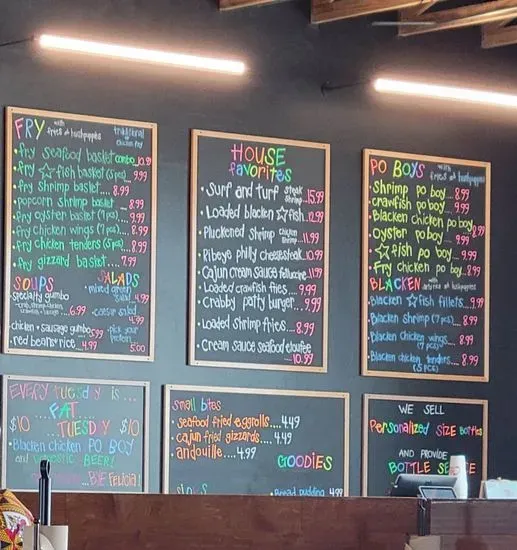 FRY with fries & hushpuppies
traditional or Cajun fry
• fry seafood basket combo 10.99
• fry ☆fish basket (5 pcs) 9.99
• fry shrimp basket... 8.99
• popcorn shrimp basket... 8.99
• fry oyster basket (7 pcs) 9.99
• fry chicken wings (7 pcs) 8.99
• fry chicken tenders (5 pcs) 8.99
• fry gizzard basket.... 7.99
SOUPS
• specialty gumbo
6.99
• chicken + sausage gumbo 5.99
• red beans + rice.. 4.99
SALADS
• mixed green salad 4.99
• caesar salad 4.99
pick your protein
5.00
HOUSE
favorites
• Surf and turf steak shrimp 15.99
• Loaded blacken ☆fish. 12.99
• Pluckened Shrimp chicken shrimp 11.99
• Ribeye philly cheesesteak. 10.99
• Cajun cream sauce fettuccine. 11.99
• Loaded crawfish fries... 9.99
• Crabby patty burger.... 9.99
• Loaded shrimp fries... 8.99
• Cream sauce seafood etouffee
10.99
PO BOYS with fries & hushpuppies
• Shrimp po boy... 8.99
• crawfish po boy.. 9.99
• Blacken chicken po boy 8.99
• Oyster po boy.... 9.99
• ☆fish po boy.. 9.99
• Fry chicken po boy.. 8.99
BLACKEN with fries & hushpuppies
• Blacken ☆fish fillets.. 9.99
• Blacken Shrimp (7 pcs).... 8.99
• Blacken Chicken wings (7 pcs)... 8.99
• Blacken chicken tenders (5 pcs) 8.99
EVERY TUESD Y is ...
... FAT ...
$10 ... TUESD Y $10
• Blacken chicken PO BOY
and domestic BEER!
BYE FELICIA!
small bites
• seafood fried eggrolls.... 4.49
• cajun fried gizzards.... 4.49
• andouille.... 4.99
GOODIES
• Bread pudding 4.99
WE SELL
Personalized SIZE Bottles
AND PROVIDE
BOTTLE SERVICE